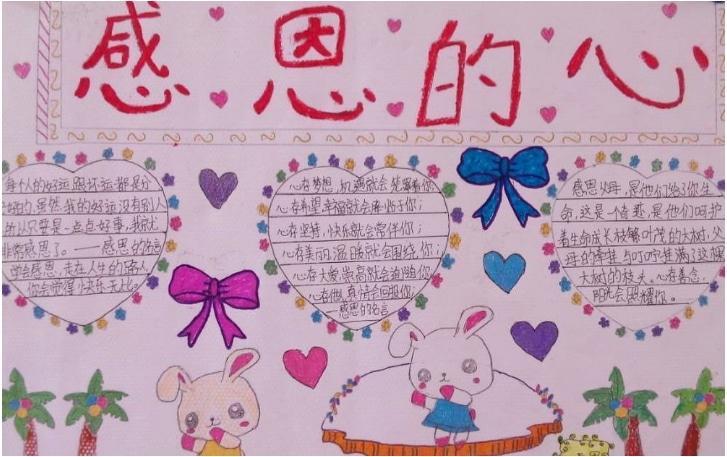 感恩的心
每个人的好运跟坏运都是分
的，虽然，我的好运没有别人
所以只要是一点点好事，我就
非常感恩了。——感恩的名言
学会感恩，走在人生的路上
你会觉得快乐无比。
心存梦想，机遇就会笼罩着你；
心存希望，幸福就会降临于你；
心存坚持，快乐就会常伴你；
心存美丽，温暖就会围绕你；
心存大爱，崇高就会追随你
心存他，真情会回报你；
——感恩的名言
感恩父母，是他们给了你生
命，这是一个慈悲，是他们呵护
着生命成长枝繁叶茂的大树，父
母的牵挂与叮咛挂满了这棵
大树的枝头。心存善念，
阳光会照耀你。